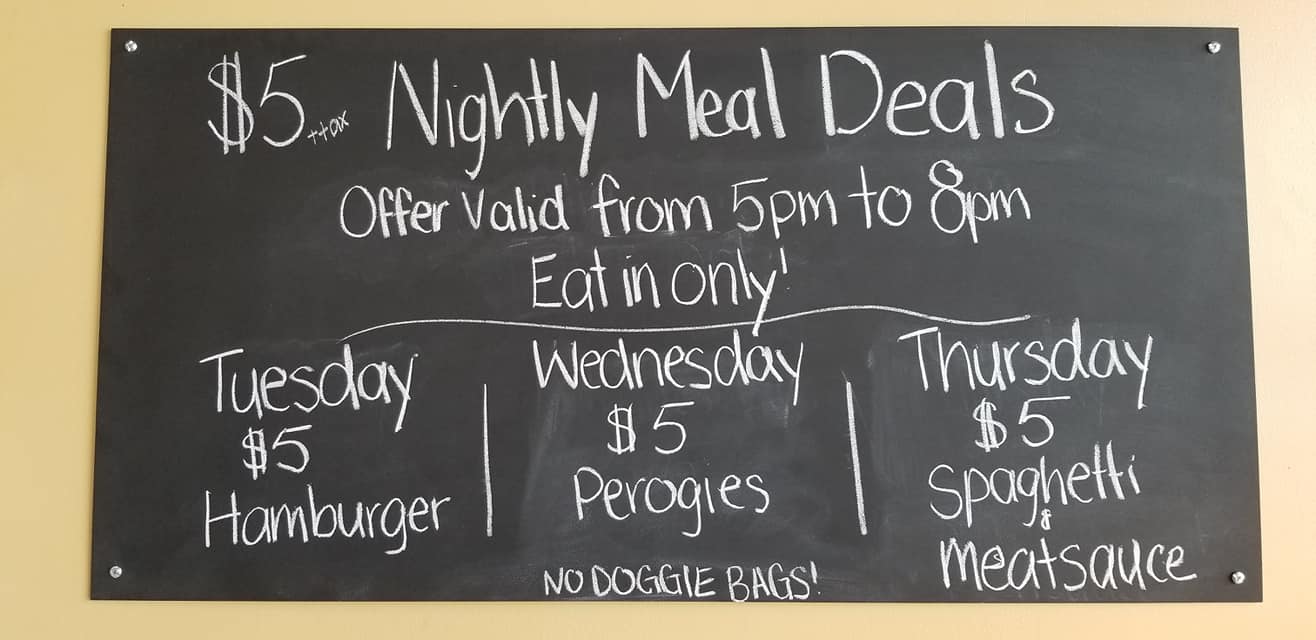 $5 ++ax Nightly Meal Deals
Offer Valid from 5pm to 8pm
Eat in only!
Tuesday
$5
Hamburger
Wednesday
$5
Perogies
Thursday
$5
Spaghetti
&
meatsauce
NO DOGGIE BAGS!